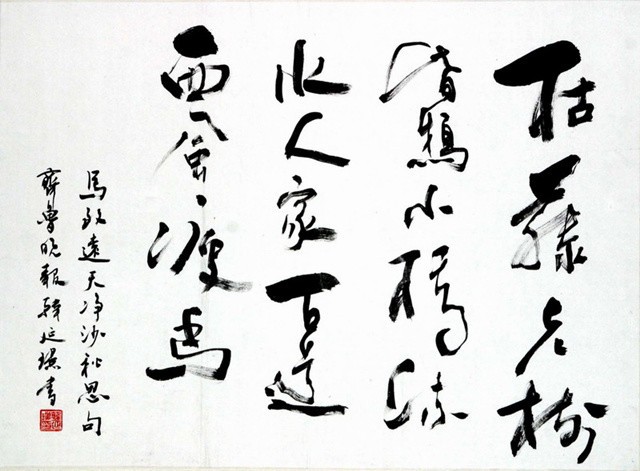 枯藤老樹
昏鴉小橋流
水人家古道
西風瘦馬
馬致遠天净沙秋思句
齊魯晚報延書